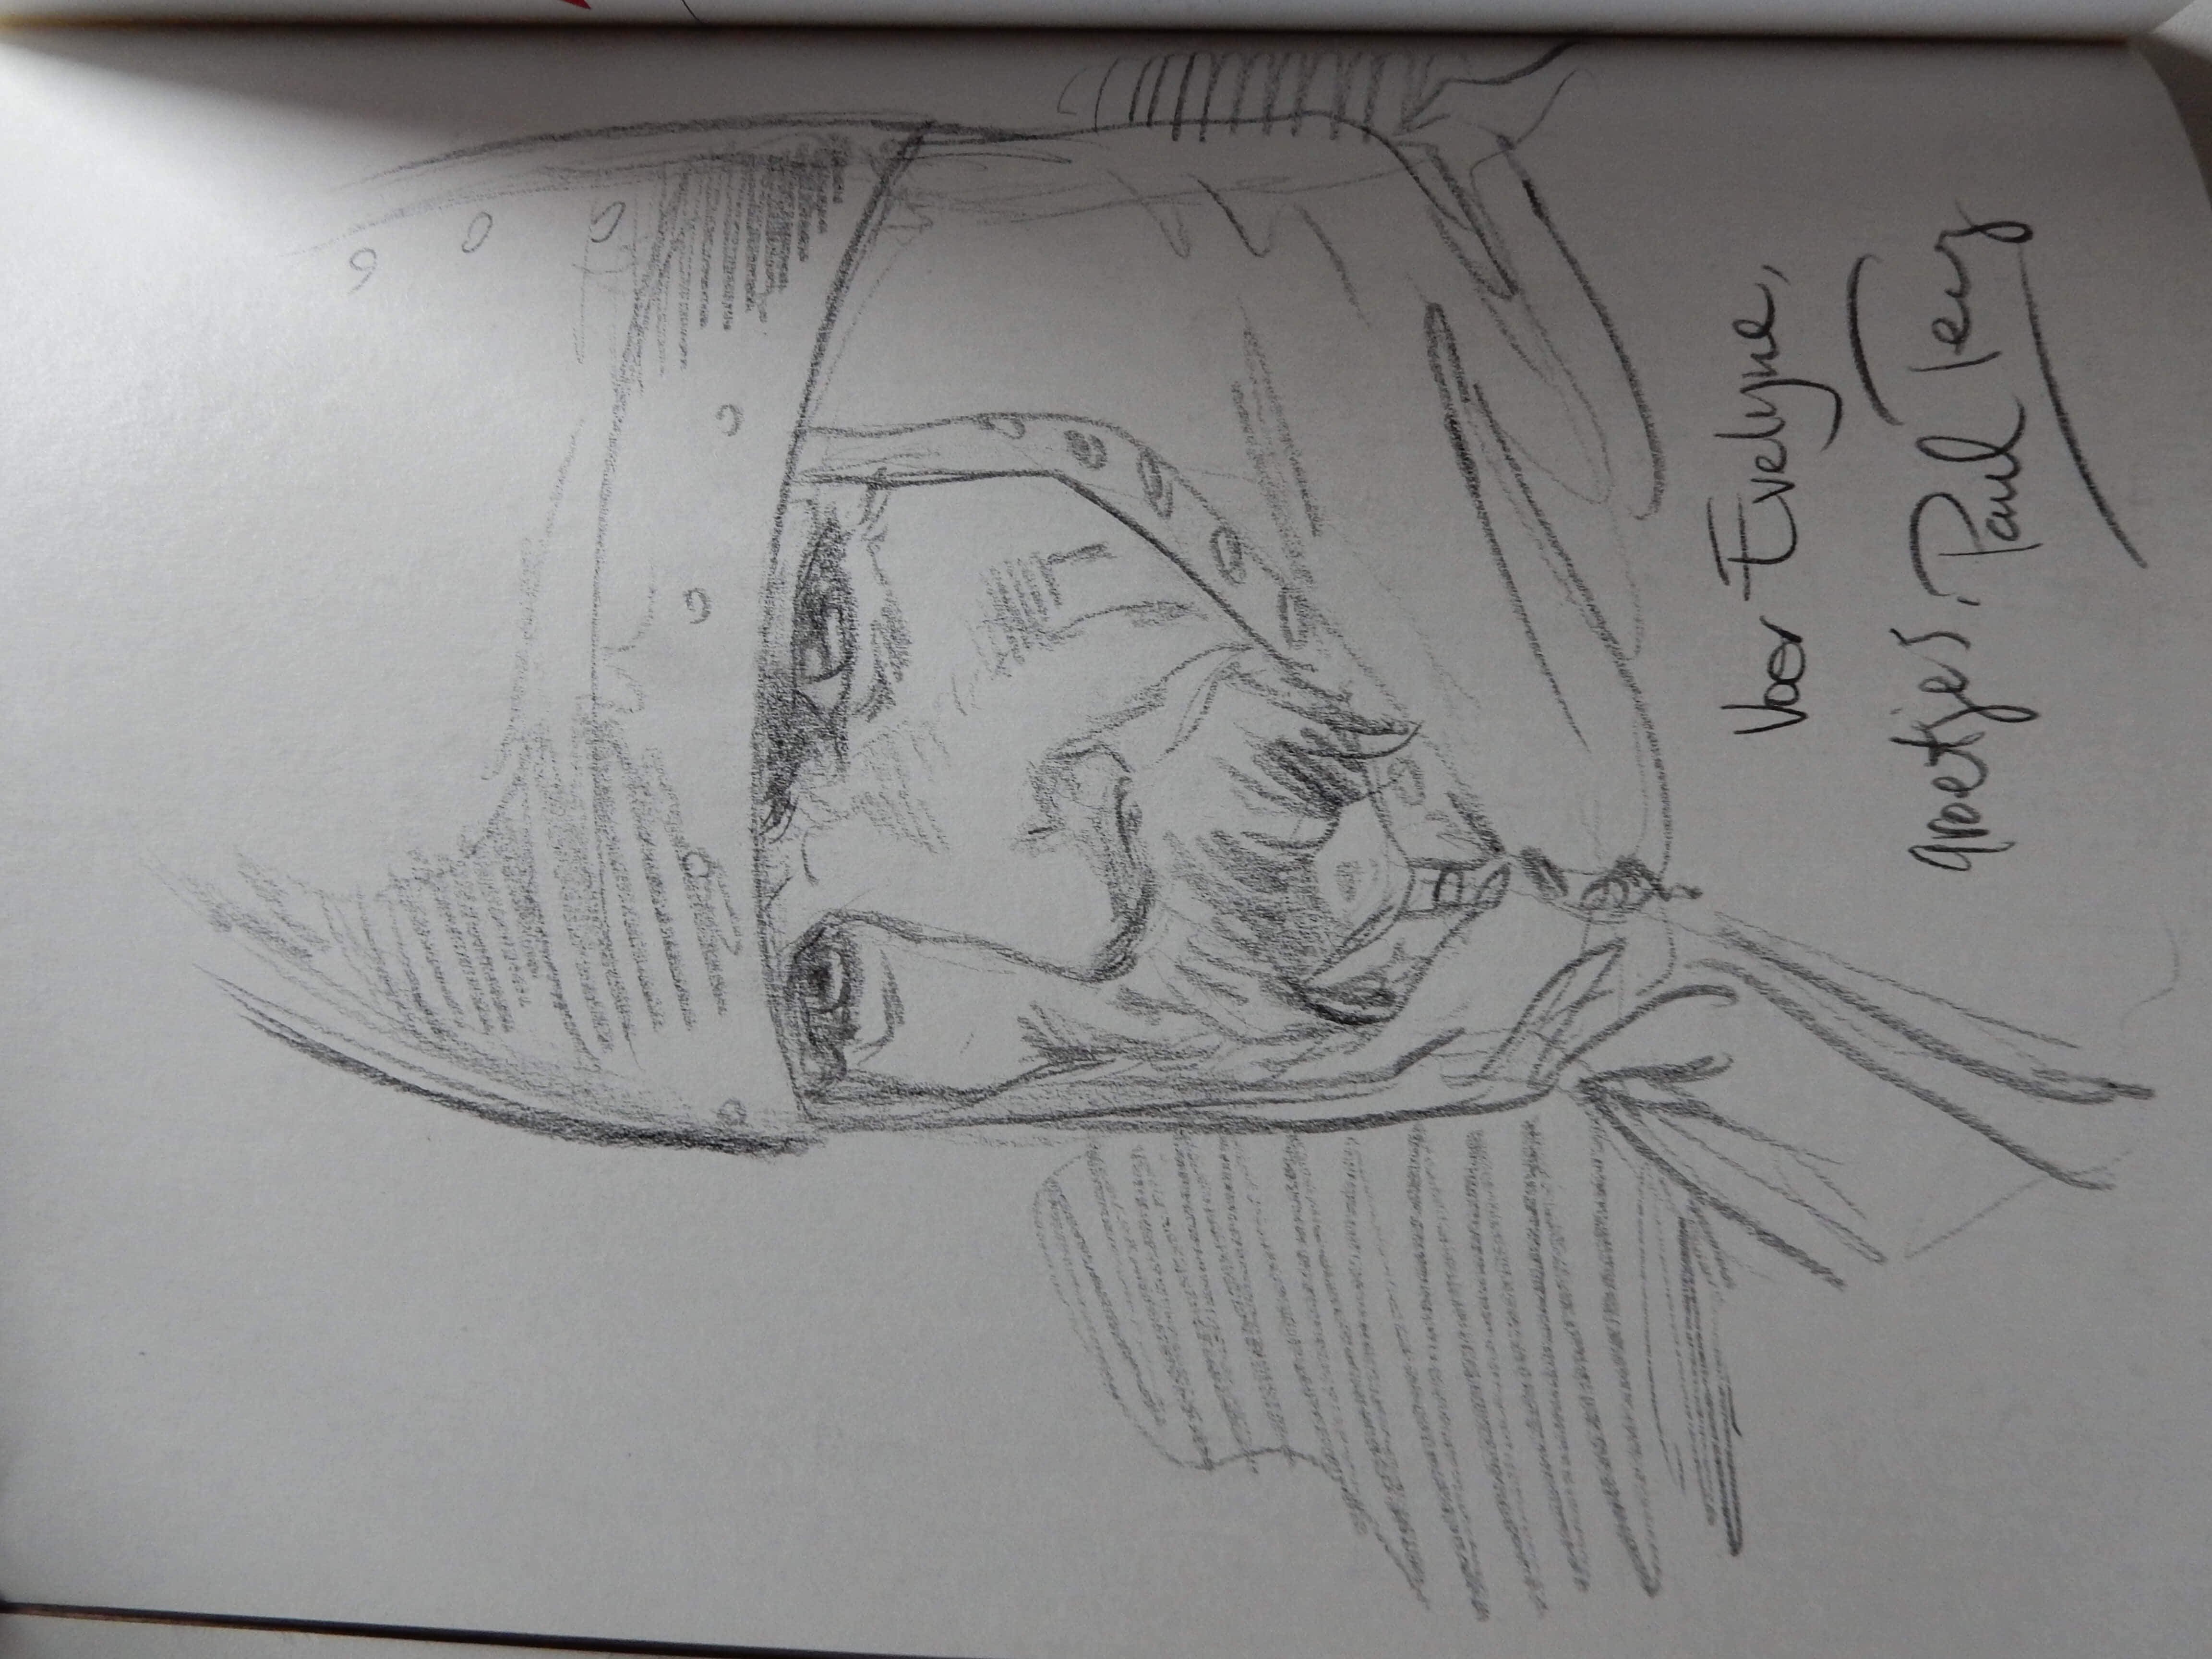 Voor Evelyne,
groetjes, Paul Teng